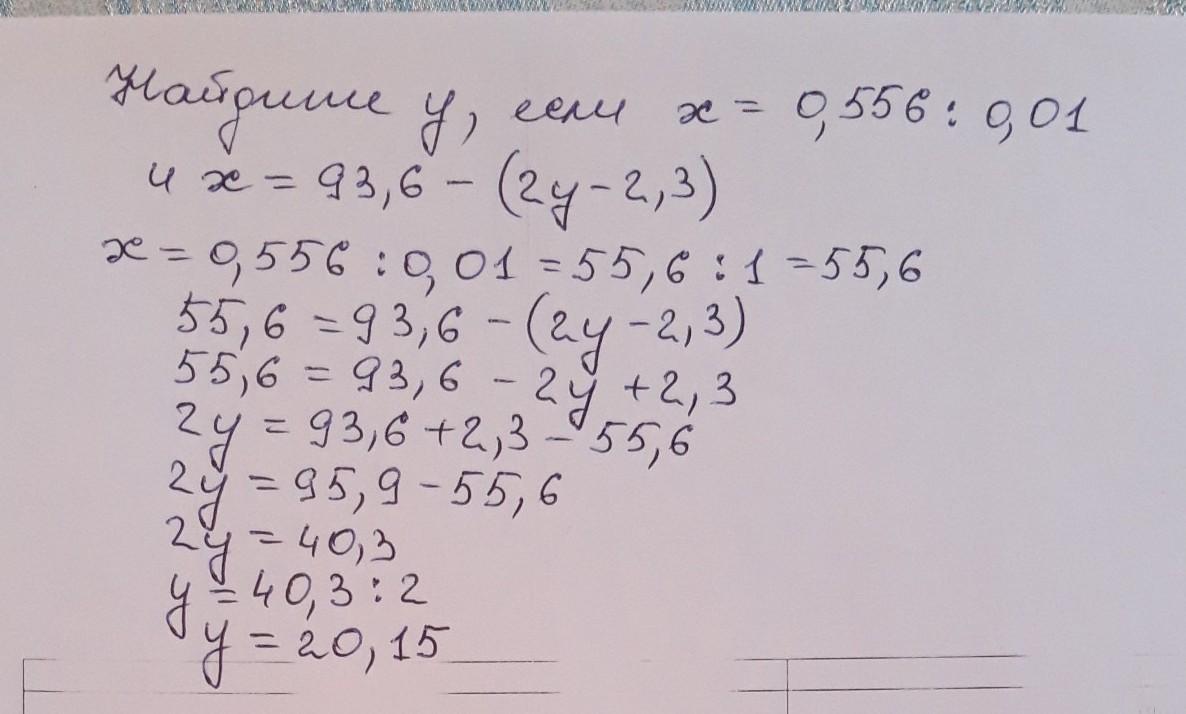 Найдите y, если x = 0,556 : 0,01
и x = 93,6 - (2y - 2,3)
x = 0,556 : 0,01 = 55,6 : 1 = 55,6
55,6 = 93,6 - (2y - 2,3)
55,6 = 93,6 - 2y + 2,3
2y = 93,6 + 2,3 - 55,6
2y = 95,9 - 55,6
2y = 40,3
y = 40,3 : 2
y = 20,15